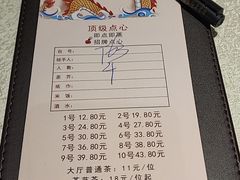 顶级点心
即点即蒸
招牌点心
台号：
经手人：
人数：
茶芥：
纸巾：
米饭：
酒水：
1号 12.80元 2号 19.80元
3号 24.80元 4号 27.80元
5号 29.80元 6号 32.80元
7号 36.80元 8号 38.80元
9号 39.80元 10号 43.80元
大厅普通茶：11元/位
茶芥茶：18元/位起